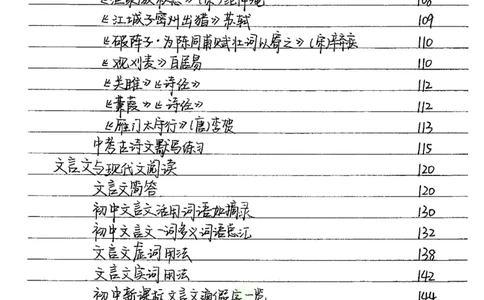 《江城子·密州出猎》苏轼 109
《破阵子·为陈同甫赋壮词以寄之》(宋)辛弃疾 110
《观刈麦》白居易 110
《关雎》《诗经》 112
《蒹葭》《诗经》 112
《雁门太守行》(唐)李贺 113
中考古诗文默写练习 115
文言文与现代文阅读 120
文言文简答 120
初中文言文活用词语知摘录 130
初中文言文一词多义词语总汇 132
文言文虚词用法 138
文言文实词用法 142
初中新课标文言文通假字一览 144